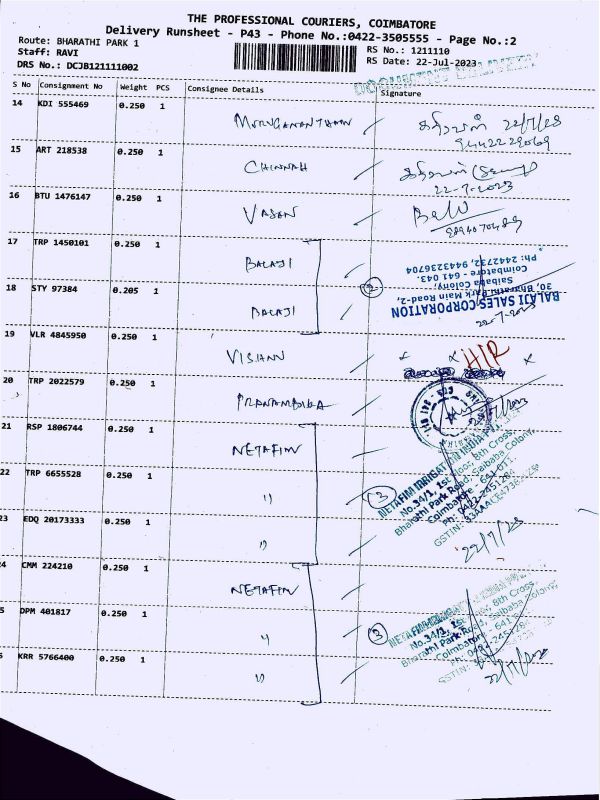 THE PROFESSIONAL COURIERS, COIMBATORE
Delivery Runsheet - P43 - Phone No.:0422-3505555 - Page No.:2
Route: BHARATHI PARK 1
RS No.: 1211110
Staff: RAVI
RS Date: 22-Jul-2023
DRS No.: DCJB121111002
DOCUMENT DELIVERY
S No Consignment No Weight PCS Consignee Details Signature
14 KDI 555469 0.250 1 MURUGANANTHAM கதிரவன் 22/7/23
9442229069
15 ART 218538 0.250 1 CHINNAH கதிரவன்
22-7-2023
16 BTU 1476147 0.250 1 VASAN
17 TRP 1450101 0.250 1 BALAJI
18 STY 97384 0.205 1 BALAJI 2
BALAJI SALES CORPORATION
30, Bharathi Park Main Road-2,
Saibaba Colony,
Coimbatore - 641 043.
Ph: 2442732, 9443236704
22-7-2023
19 VLR 4845950 0.250 1 VISHNN HIR
20 TRP 2022579 0.250 1 PRANAMBIKA
21 RSP 1806744 0.250 1 NETAFIM
22 TRP 6655528 0.250 1 " 3
NETAFIM IRRIGATION INDIA PVT.
No.34/1, 1st Floor, 8th Cross,
Bharathi Park Road, Saibaba Colony,
Coimbatore - 641 011
22/7/23
23 EDQ 20173333 0.250 1 "
24 CMM 224210 0.250 1 NETAFIM
5 DPM 401817 0.250 1 " 3
No.34/1, 8th Cross,
Bharathi Park Road, Saibaba Colony,
Coimbatore - 641
KRR 5766400 0.250 1 "